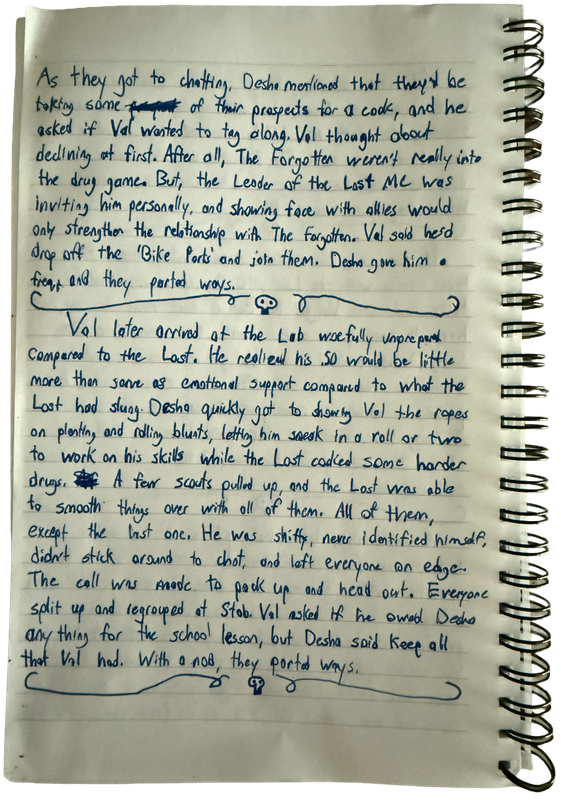 As they got to chatting, Desha mentioned that they'd be
taking some of their prospects for a cook, and he
asked if Val wanted to tag along. Val thought about
declining at first. After all, The Forgotten weren't really into
the drug game. But, the Leader of the Lost MC was
inviting him personally, and showing face with allies would
only strengthen the relationship with The Forgotten. Val said he'd
drop off the 'Bike Parts' and join them. Desha gave him a
and they parted ways.
Val later arrived at the Lab woefully unprepared
compared to the Lost. He realized his .50 would be little
more than serve as emotional support compared to what the
Lost had slung. Desha quickly got to showing Val the ropes
on planting and rolling blunts, letting him sneak in a roll or two
to work on his skills while the Lost cooked some harder
drugs. A few scouts pulled up, and the Lost was able
to smooth things over with all of them. All of them,
except the last one. He was shifty, never identified himself,
didn't stick around to chat, and left everyone on edge.
The call was made to pack up and head out. Everyone
split up and regrouped at Stab. Val asked if he owed Desha
anything for the school lesson, but Desha said keep all
that Val had. With a nod, they parted ways.